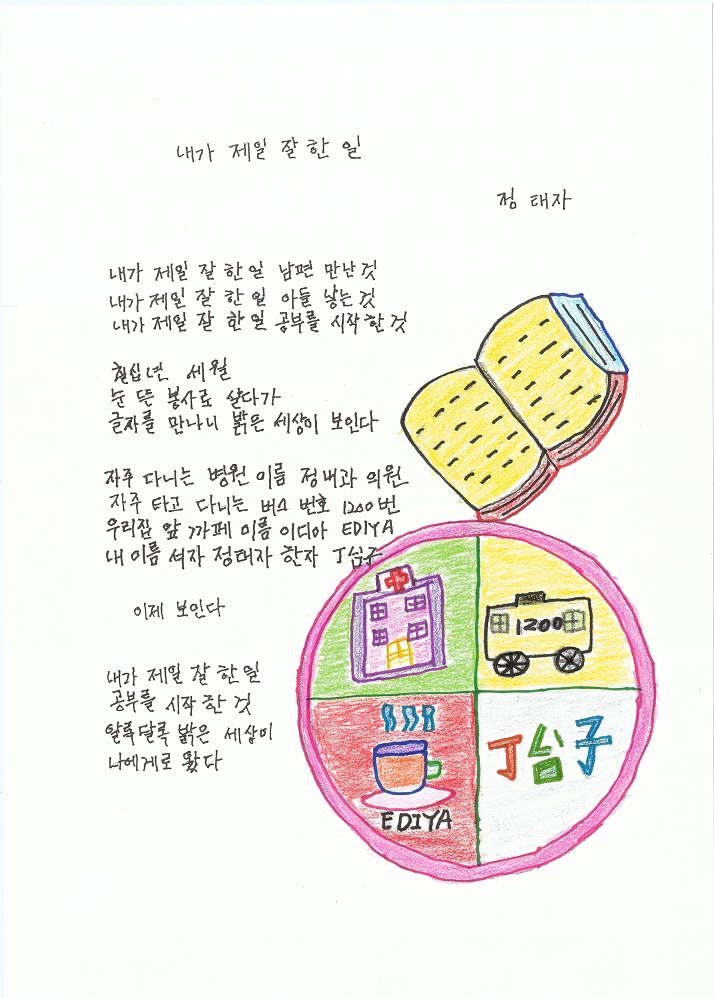 내가 제일 잘 한 일
정 태자
내가 제일 잘 한 일 남편 만난 것
내가 제일 잘 한 일 아들 낳는 것
내가 제일 잘 한 일 공부를 시작 한 것
칠십년 세월
눈 뜬 봉사로 살다가
글자를 만나니 밝은 세상이 보인다
자주 다니는 병원 이름 정내과 의원
자주 타고 다니는 버스 번호 1200번
우리집 앞 까페 이름 이디아 EDIYA
내 이름 석자 정태자 한자 丁台子
이제 보인다
내가 제일 잘 한 일
공부를 시작 한 것
알록달록 밝은 세상이
나에게로 왔다
1200
EDIYA
丁台子